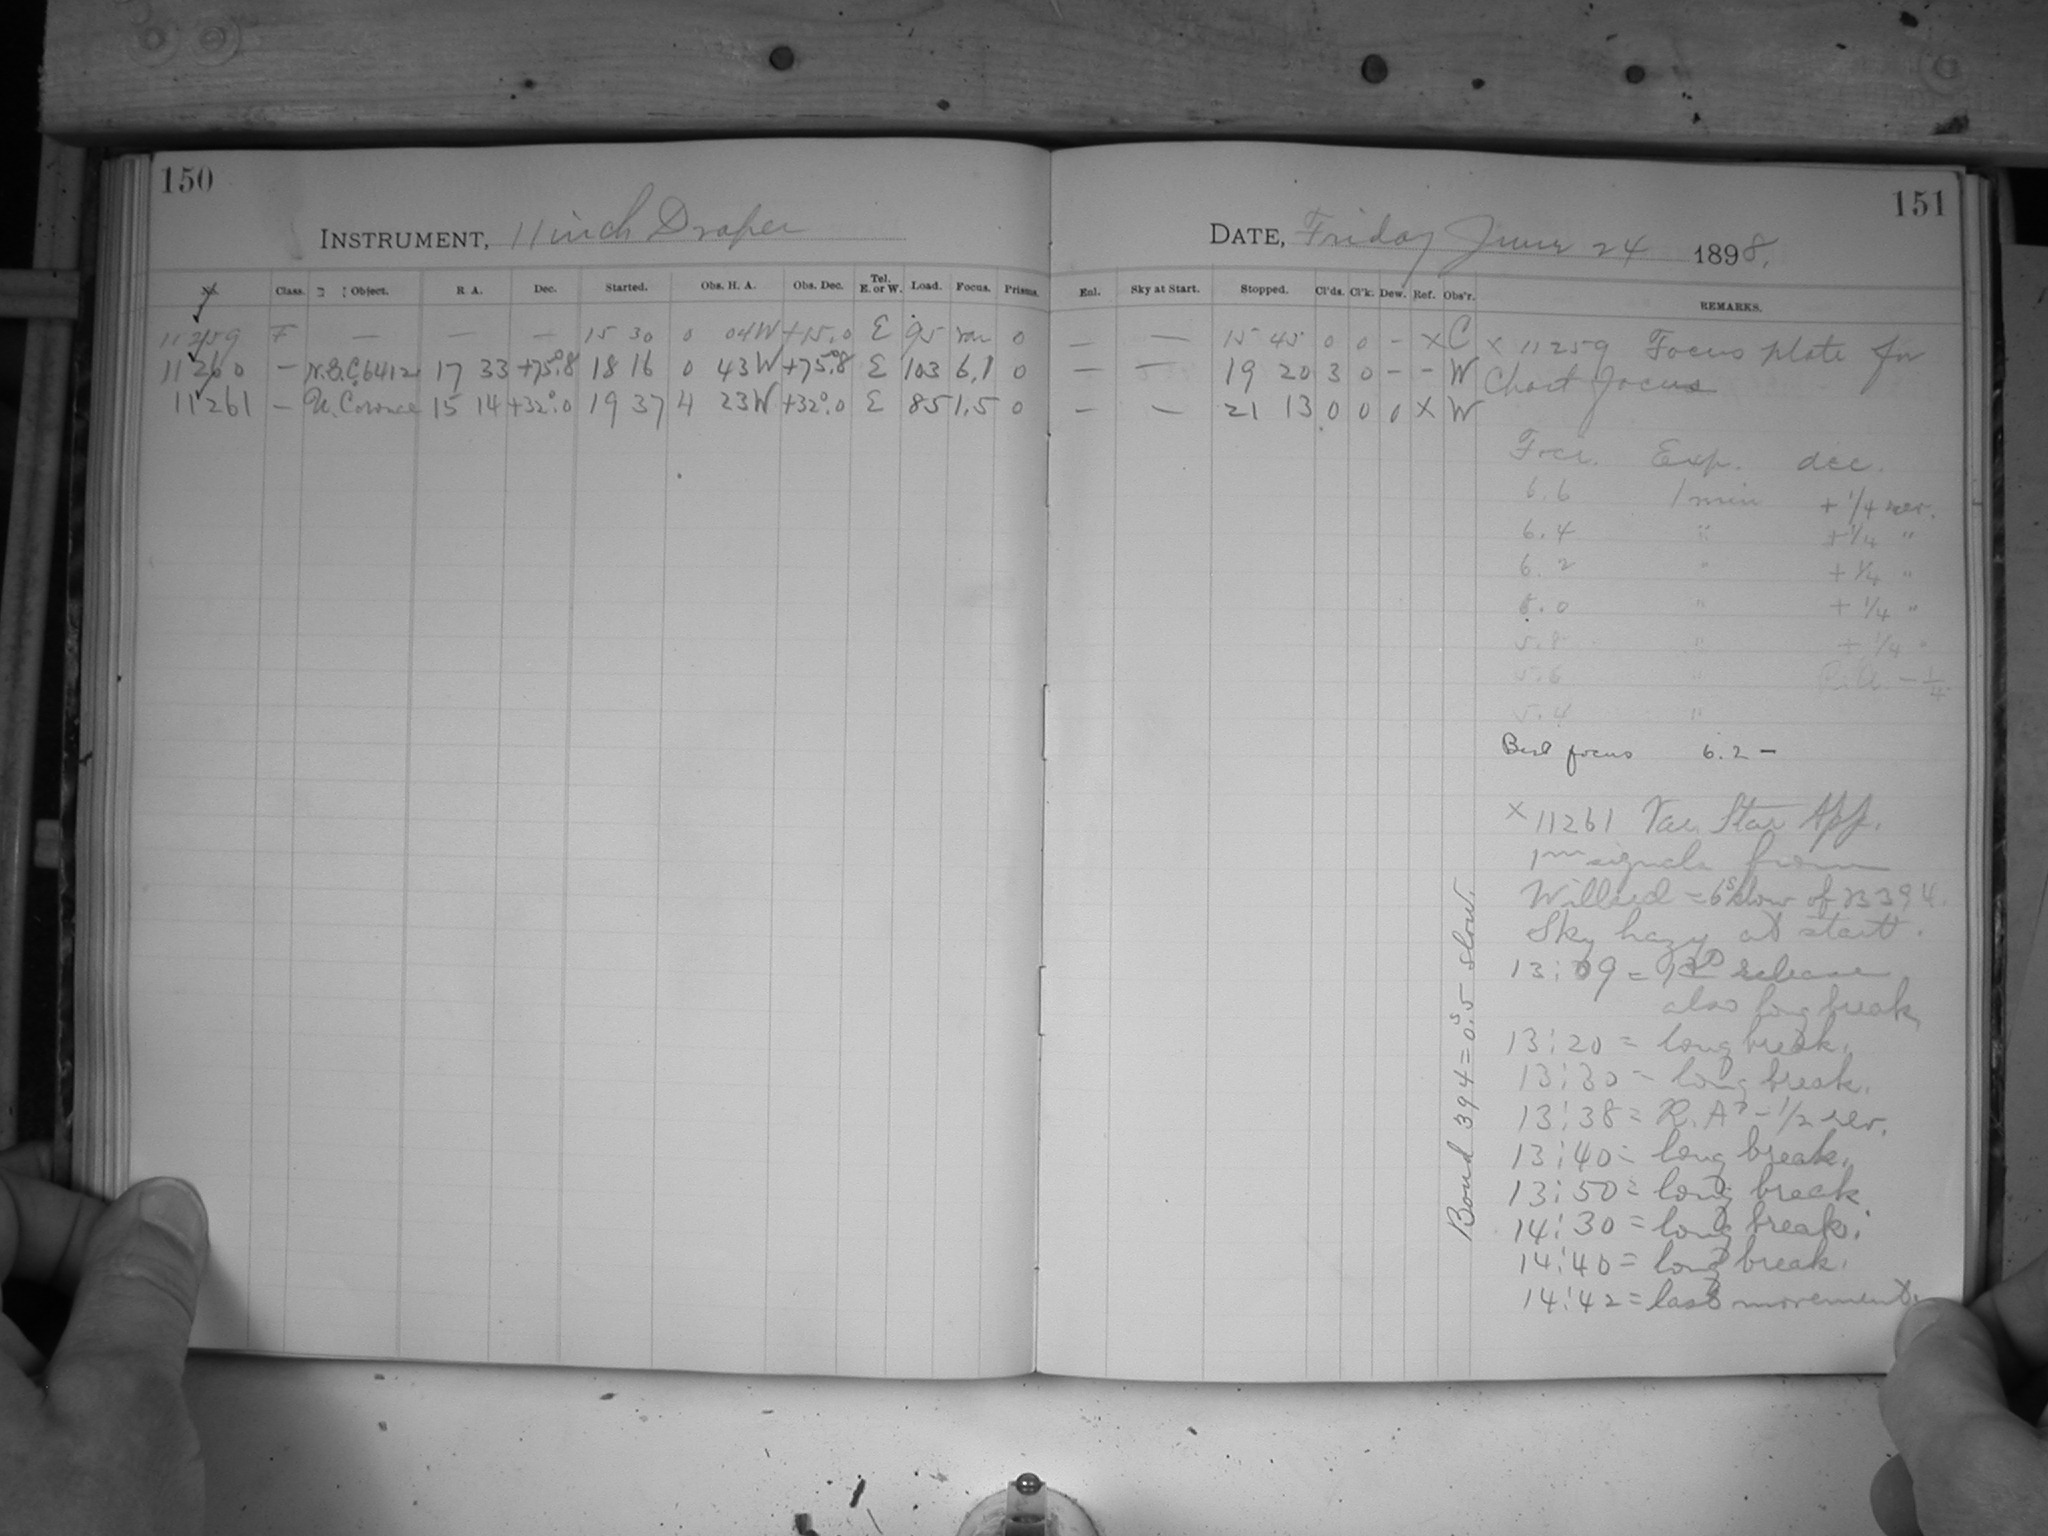 150
INSTRUMENT, 11 inch Draper
No. Class. Object. R. A. Dec. Started. Obs. H. A. Obs. Dec. Tel. E. or W. Load. Focus. Prisms.
11259 F — — — 15 30 0 04W +15.0 E 95 var 0
11260 — N.G.C. 6412 17 33 +75°.8 18 16 0 43W +75°.8 E 103 6.1 0
11261 — U. Coronae 15 14 +32°.0 19 37 4 23W +32°.0 E 85 1.5 0
151
DATE, Friday June 24 1898.
Enl. Sky at Start. Stopped. Cl'ds. Cl'k. Dew. Ref. Obs'r. REMARKS.
— — 15 45 0 0 – × C × 11259 Focus plate for
— — 19 20 3 0 – – W Chart focus
— — 21 13 0 0 0 × W
Focu. Exp. dec.
6.6 1 min + 1/4 rev.
6.4 " + 1/4 "
6.2 " + 1/4 "
6.0 " + 1/4 "
5.8 " + 1/4 "
5.6 " R.A. – 1/4
5.4 "
Best focus 6.2 –
× 11261 Var. Star App.
1m signals from
Willard = 6s slow of B 394.
Sky hazy at start.
13:09 = release
also long break,
13:20 = long break.
13:30 = long break.
13:38 = R.A. – 1/2 rev.
13:40 = long break.
13:50 = long break
14:30 = long break.
14:40 = long break.
14:42 = last movement.
Bond 394 = 0s.5 slow.